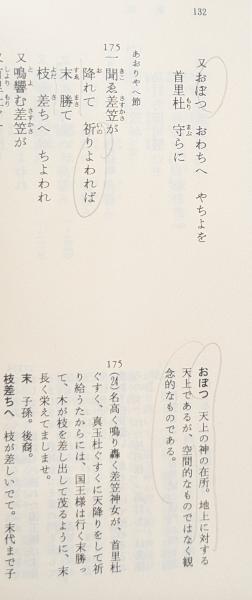 132
又おぼつ おわちへ やちよを
首里杜 守らに
もり まぶ
あおりやへ節
175
一聞ゑ差笠が
きこ さすかさ
降れて 祈りよわれば
お いの
末 勝て
すゑ まさ
枝 差ちへ ちよわれ
よだ さ
又鳴響む差笠が
とよ さすかさ
おぼつ 天上の神の在所。地上に対する
天上であるが、空間的なものではなく観
念的なものである。
175
(24)名高く鳴り轟く差笠神女が、首里杜
ぐすく、真玉杜ぐすくに天降りをして祈
り給うたからには、国王様は行く末勝っ
て、木が枝を差し出して茂るように、末
長く栄えてましませ。
末 子孫。後裔。
枝差ちへ 枝が差しいでて。末代まで子